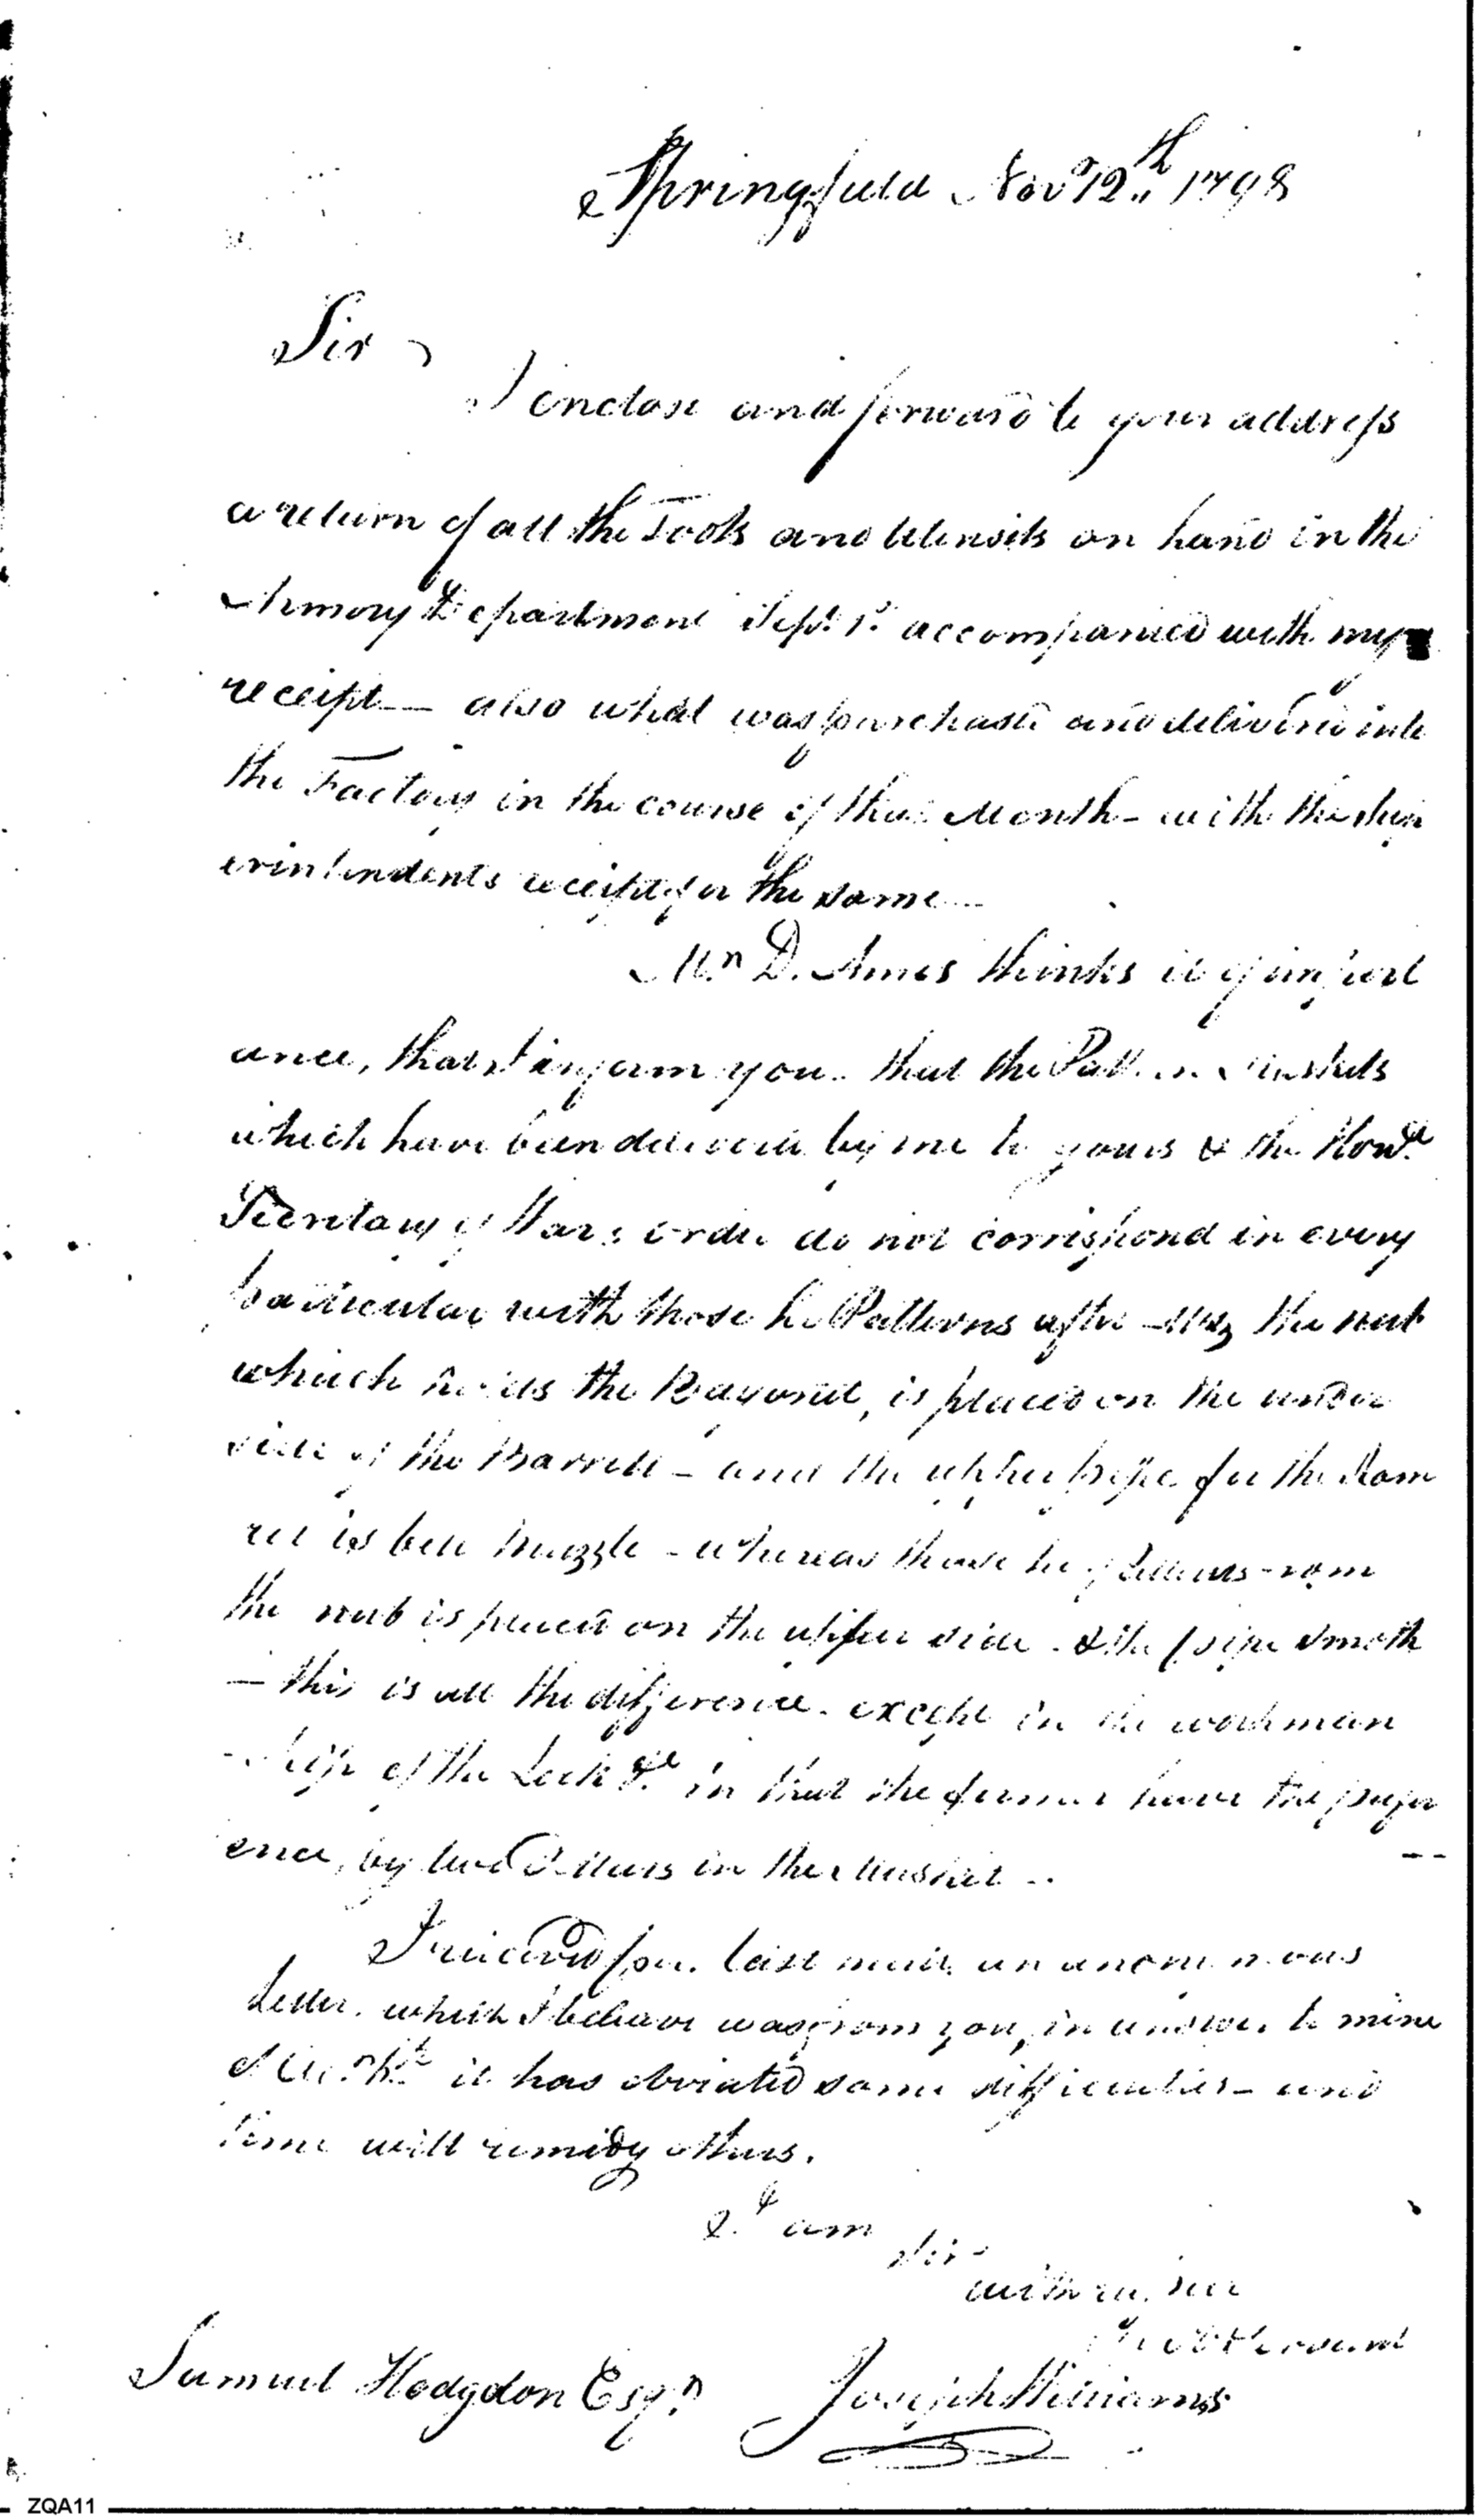 Springfield Novr 12th 1798
Sir
I enclose and forward to your address
a return of all the Tools and Utensils on hand in the
Armory Department Sept. 1st. accompanied with my
receipt — also what was purchasd and delivered into
the Factory in the course of that Month - with the Sup
erintendents receipt for the same —
Mr. D. Ames thinks it of import
ance, that I inform you that the Pattern Muskets
which have been delivered by me to yours & the Honble
Secretary of Wars order do not correspond in every
particular with those he Patterns after - Viz the nub
which holds the Bayonet, is placed on the under
side of the Barrell - and the upper pipe for the Ram
rod is bell muzzle - whereas those he patterns from
the nub is placed on the upper side - & the pipe smoth
— this is all the difference - except in the workman
ship of the Lock &c in that the former have the prefer
ence, by two Dollars in the Musket -
I received per last mail an anominous
Letter, which I beleave was from you, in answer to mine
it has obviated some difficulties - and
time will remidy others.
I am
Sir
with
Servant
Samuel Hodgdon Esqr. Joseph Williams
ZQA11